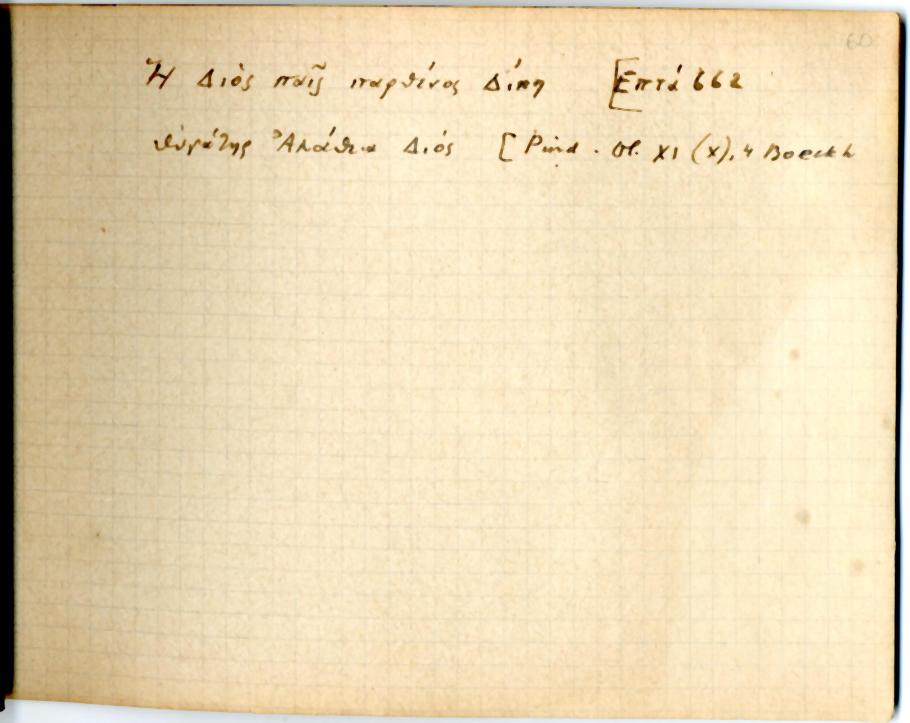 60
Ἡ Διὸς παῖς παρθένος Δίκη [Επτά 662
θυγάτηρ Ἀλάθεια Διός [Pind. Ol. XI (X), 4 Boeckh